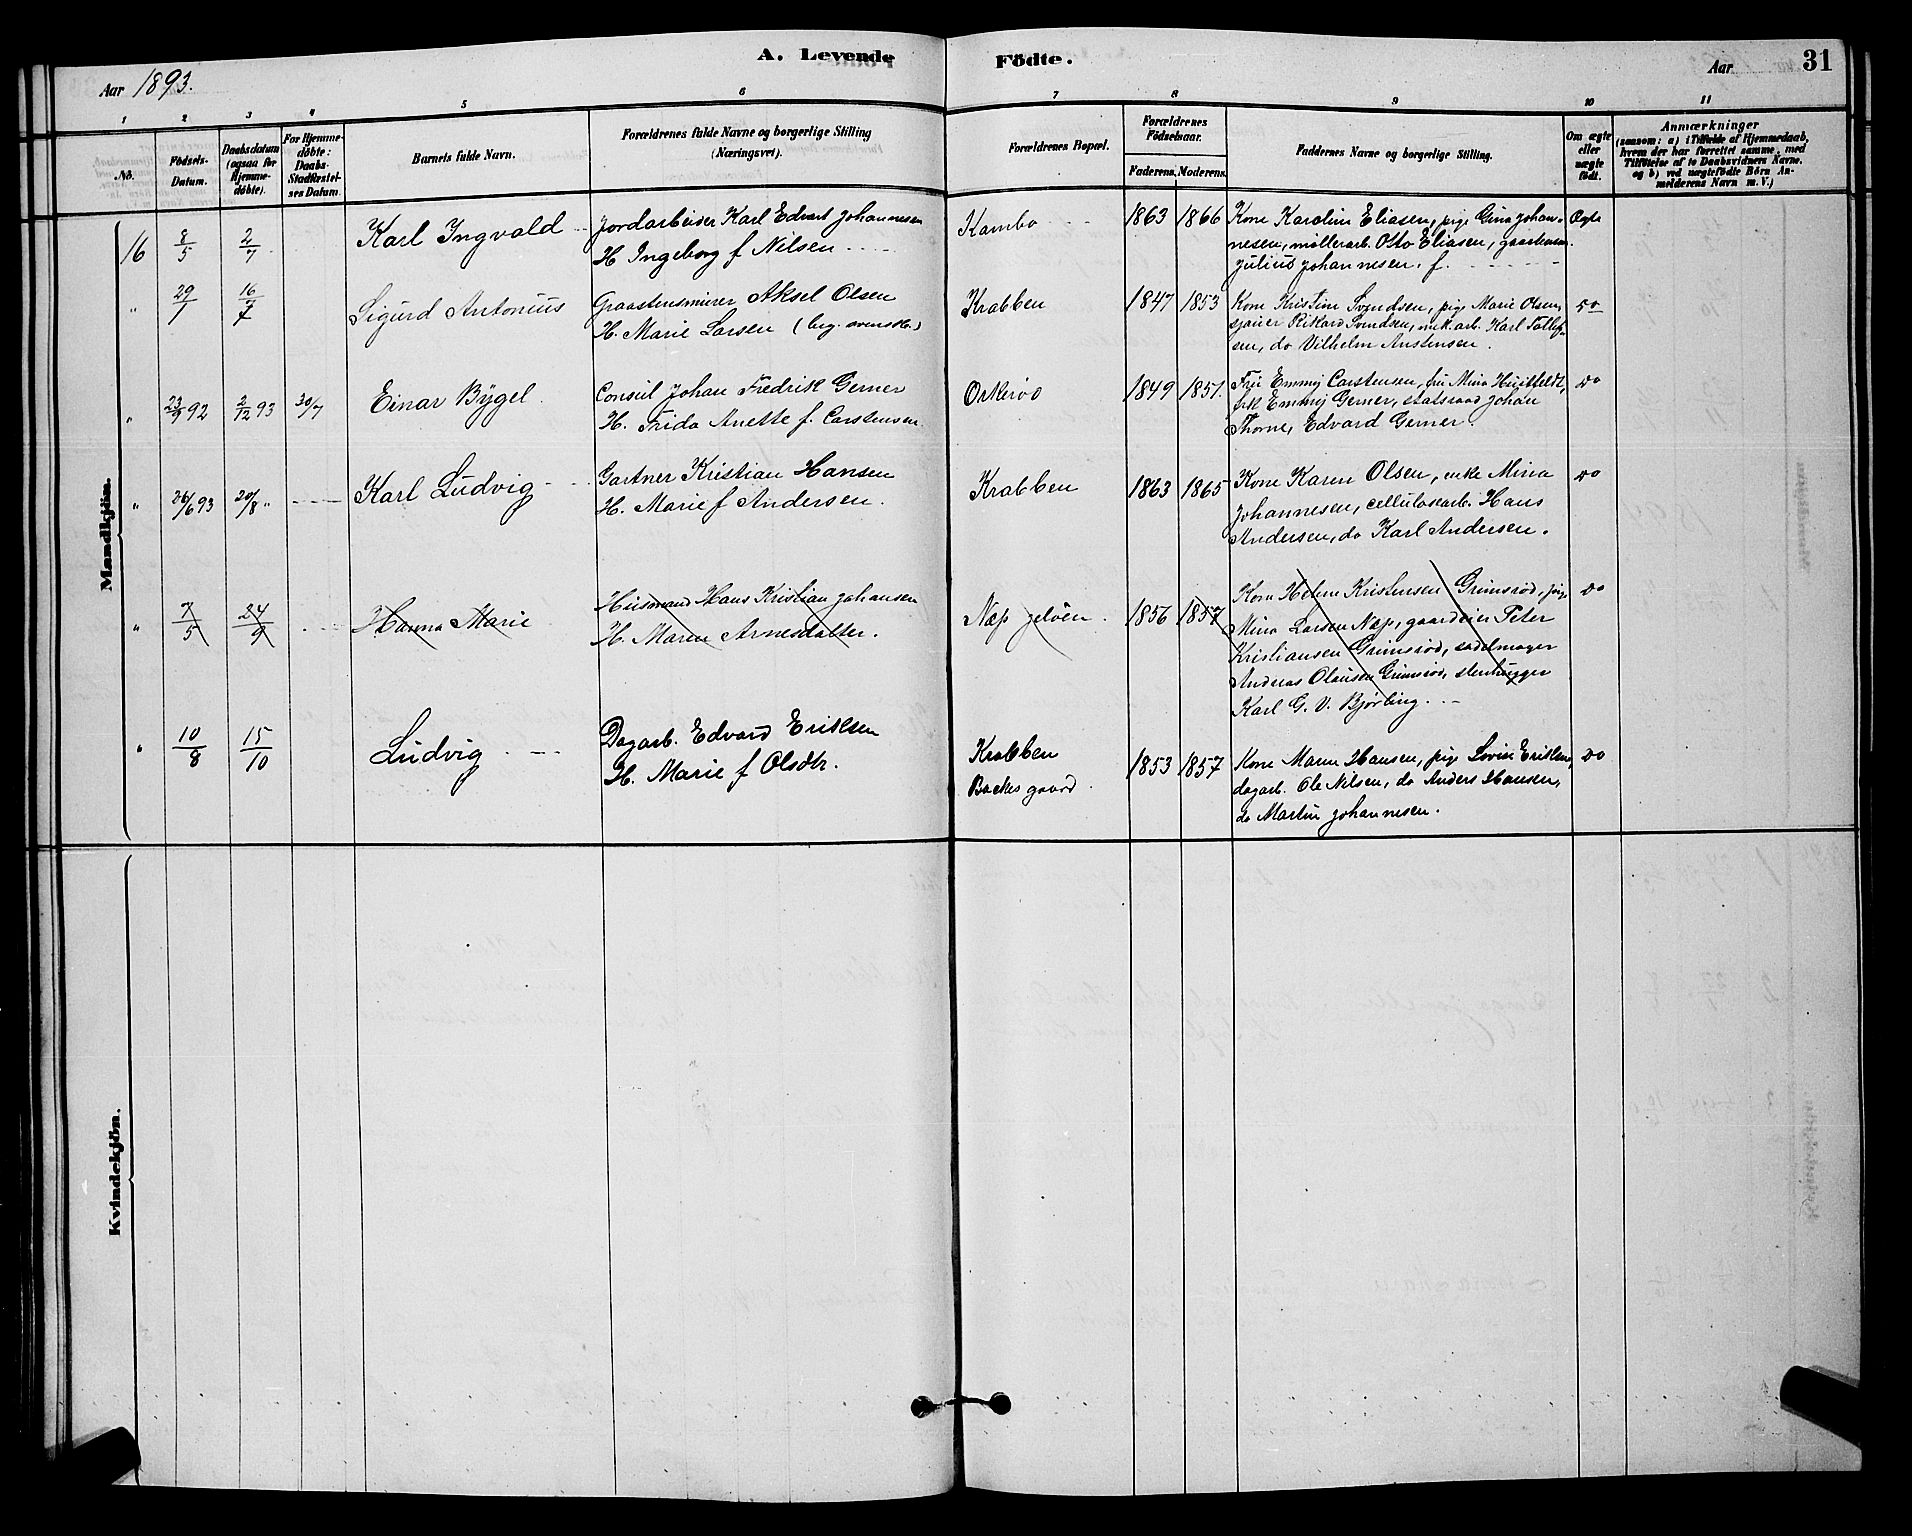 A. Levende Födte.
31
Aar 1893.
Aar
1 2 3 4 5 6 7 8 9 10 11
No.
Födsels-Datum.
Daabsdatum (ogsaa for Hjemmedöbte).
For Hjemmedöbte: Daabs-Stadfæstelses Datum.
Barnets fulde Navn.
Forældrenes fulde Navne og borgerlige Stilling
(Næringsvei).
Forældrenes Bopæl.
Forældrenes Födselsaar.
Faderens. Moderens.
Faddernes Navne og borgerlige Stilling.
Om ægte eller uægte födt.
Anmærkninger
(saasom: a) i Tilfælde af Hjemmedaab,
hvem der har forrettet samme, med
Tilföielse af to Daabsvidners Navne,
og b) ved uægtefödte Börn Anmelderens Navn m. V.)
Mandkjön.
16 8/5 2/7 Karl Ingvald
Jordarbeider Karl Edvart Johannesen
H Ingeborg f Nilsen
Kambo 1863 1866
Kone Karoline Eliasen, pige Gina Johan-
nesen, møllerarb. Otto Eliasen,
Julius Johannesen. f.
Ægte
" 29/1 16/7 Sigurd Antonius
Graastensmurer Aksel Olsen
H. Marie Larsen
Krabben 1847 1853
Kone Kristine Svendsen, pige Marie Olsen,
Rikard Svendsen, Karl Tollef-
sen, do Vilhelm Anstensen.
do
" 23/9 92 2/12 93 30/7 Einar Bÿgel
Consul Johan Fredrik Gerner
H. Frida Anette f. Carstensen
Orkerød 1849 1851.
Frue Emmy Carstensen, fru Mina Huitfeldt,
frk Emmy Gerner, statsraad Johan
Thorne, Edvard Gerner.
do
" 26/6 93 20/8 " Karl Ludvig
Gartner Kristian Hansen
H. Marie f Andersen.
Krabben 1863 1865
Kone Karen Olsen, enke Mina
Johannesen, cellulosearb. Hans
Andersen, do Karl Andersen.
do
" 7/5 24/9 Hanna Marie
Husmand Hans Kristian Johansen
H. Maren Arnesdatter.
Næs Jeløen. 1856 1857
Kone Helene Kristensen Grimsrød, pige
Mina Larsen Næs, gaardeier Peter
Kristiansen Grimsrød, sadelmager
Andreas Olausen Grimsrød, stenhugger
Karl G. V. Bjørling.
do
" 10/8 15/10 Ludvig
Dagarb. Edvard Eriksen
H. Marie f Olsdtr.
Krabben
Backesgaard. 1853 1857
Kone Maren Hansen, pige Lovise Eriksen,
dagarb. Ole Nilsen, do Anders Hansen,
do Martin Johannesen.
do
Kvindekjön.